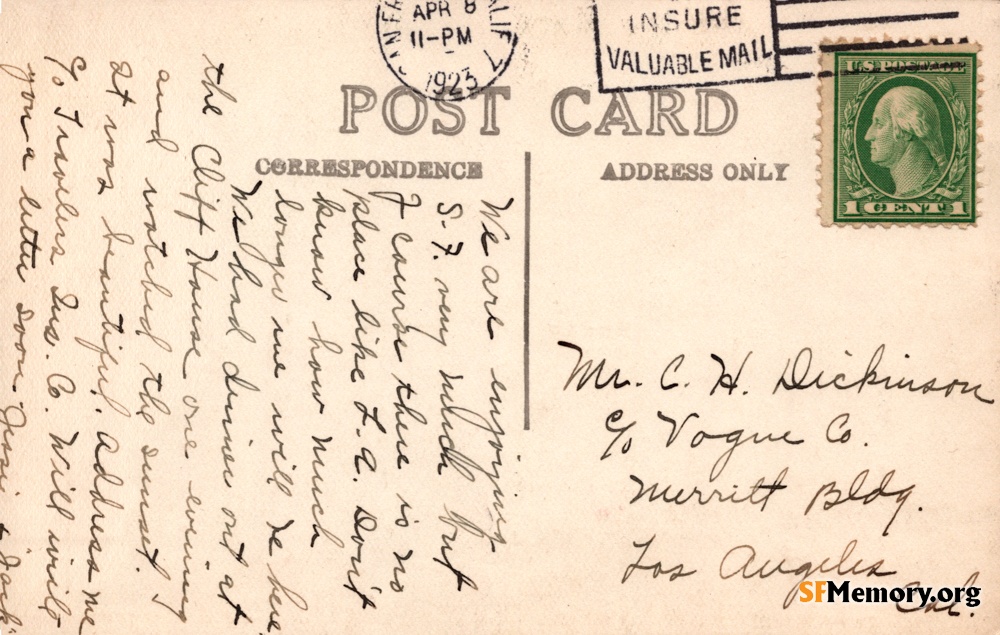 APR 8
11-PM
1923
INSURE
VALUABLE MAIL
U.S. POSTAGE
1 CENT 1
POST CARD
CORRESPONDENCE
ADDRESS ONLY
We are enjoying
S.F. very much but
of course there is no
place like L.A. Don't
know how much
longer we will be here
We had dinner out at
the Cliff House one evening
and watched the sunset.
It was beautiful. Address me
c/o Travelers Ins. Co. Will write
you a letter soon.
Mr. C. H. Dickinson
c/o Vogue Co.
Merritt Bldg.
Los Angeles
Cal.
SFMemory.org